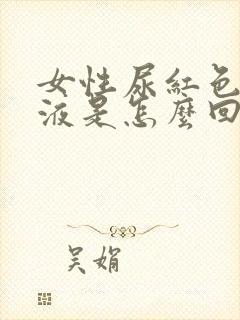 女性尿紅色
液是怎麼回
吴娟